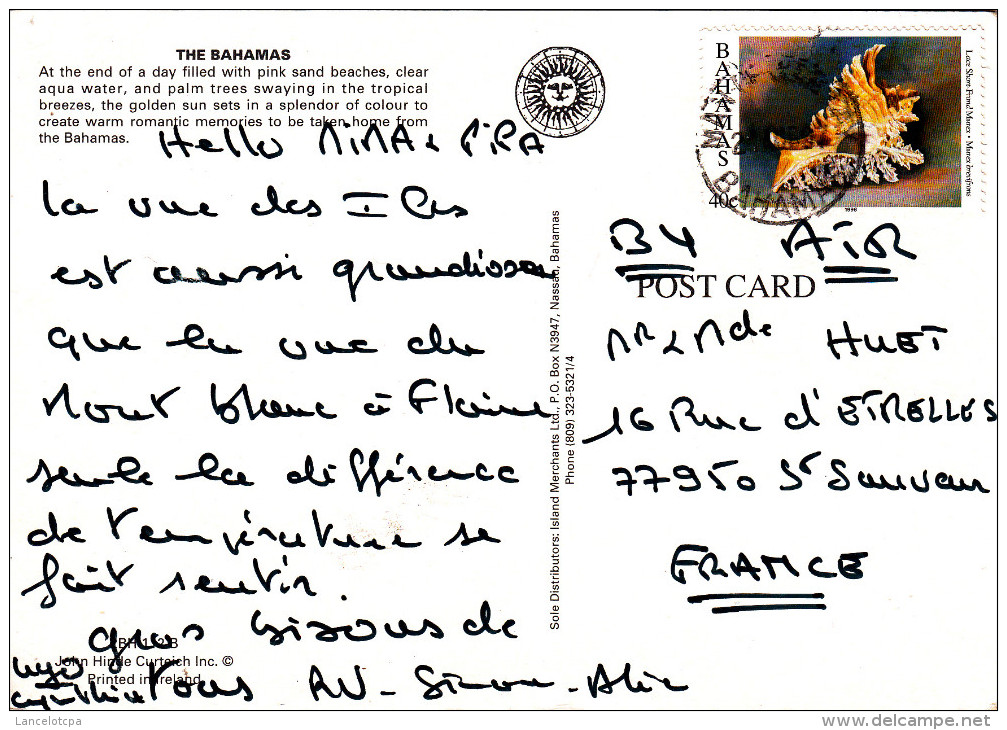 THE BAHAMAS
At the end of a day filled with pink sand beaches, clear
aqua water, and palm trees swaying in the tropical
breezes, the golden sun sets in a splendor of colour to
create warm romantic memories to be taken home from
the Bahamas.
Hello MiMA & PiPA
la vue des Iles
est aussi grandiose
que la vue du
Mont blanc à Flaine
seule la différence
de température se
fait sentir.
gros bisous de
Tous
Simon - Alix
Cynthia
John Hinde Curteich Inc. ©
Printed in Ireland
Sole Distributors: Island Merchants Ltd., P.O. Box N3947, Nassau, Bahamas
Phone (809) 323-5321/4
BAHAMAS
40c
1996
BAHAMA
BY AIR
POST CARD
Mr & Mde HUET
16 Rue d'ETRELLES
77950 St Sauveur
FRANCE
Lancelotcpa
delcampe.net